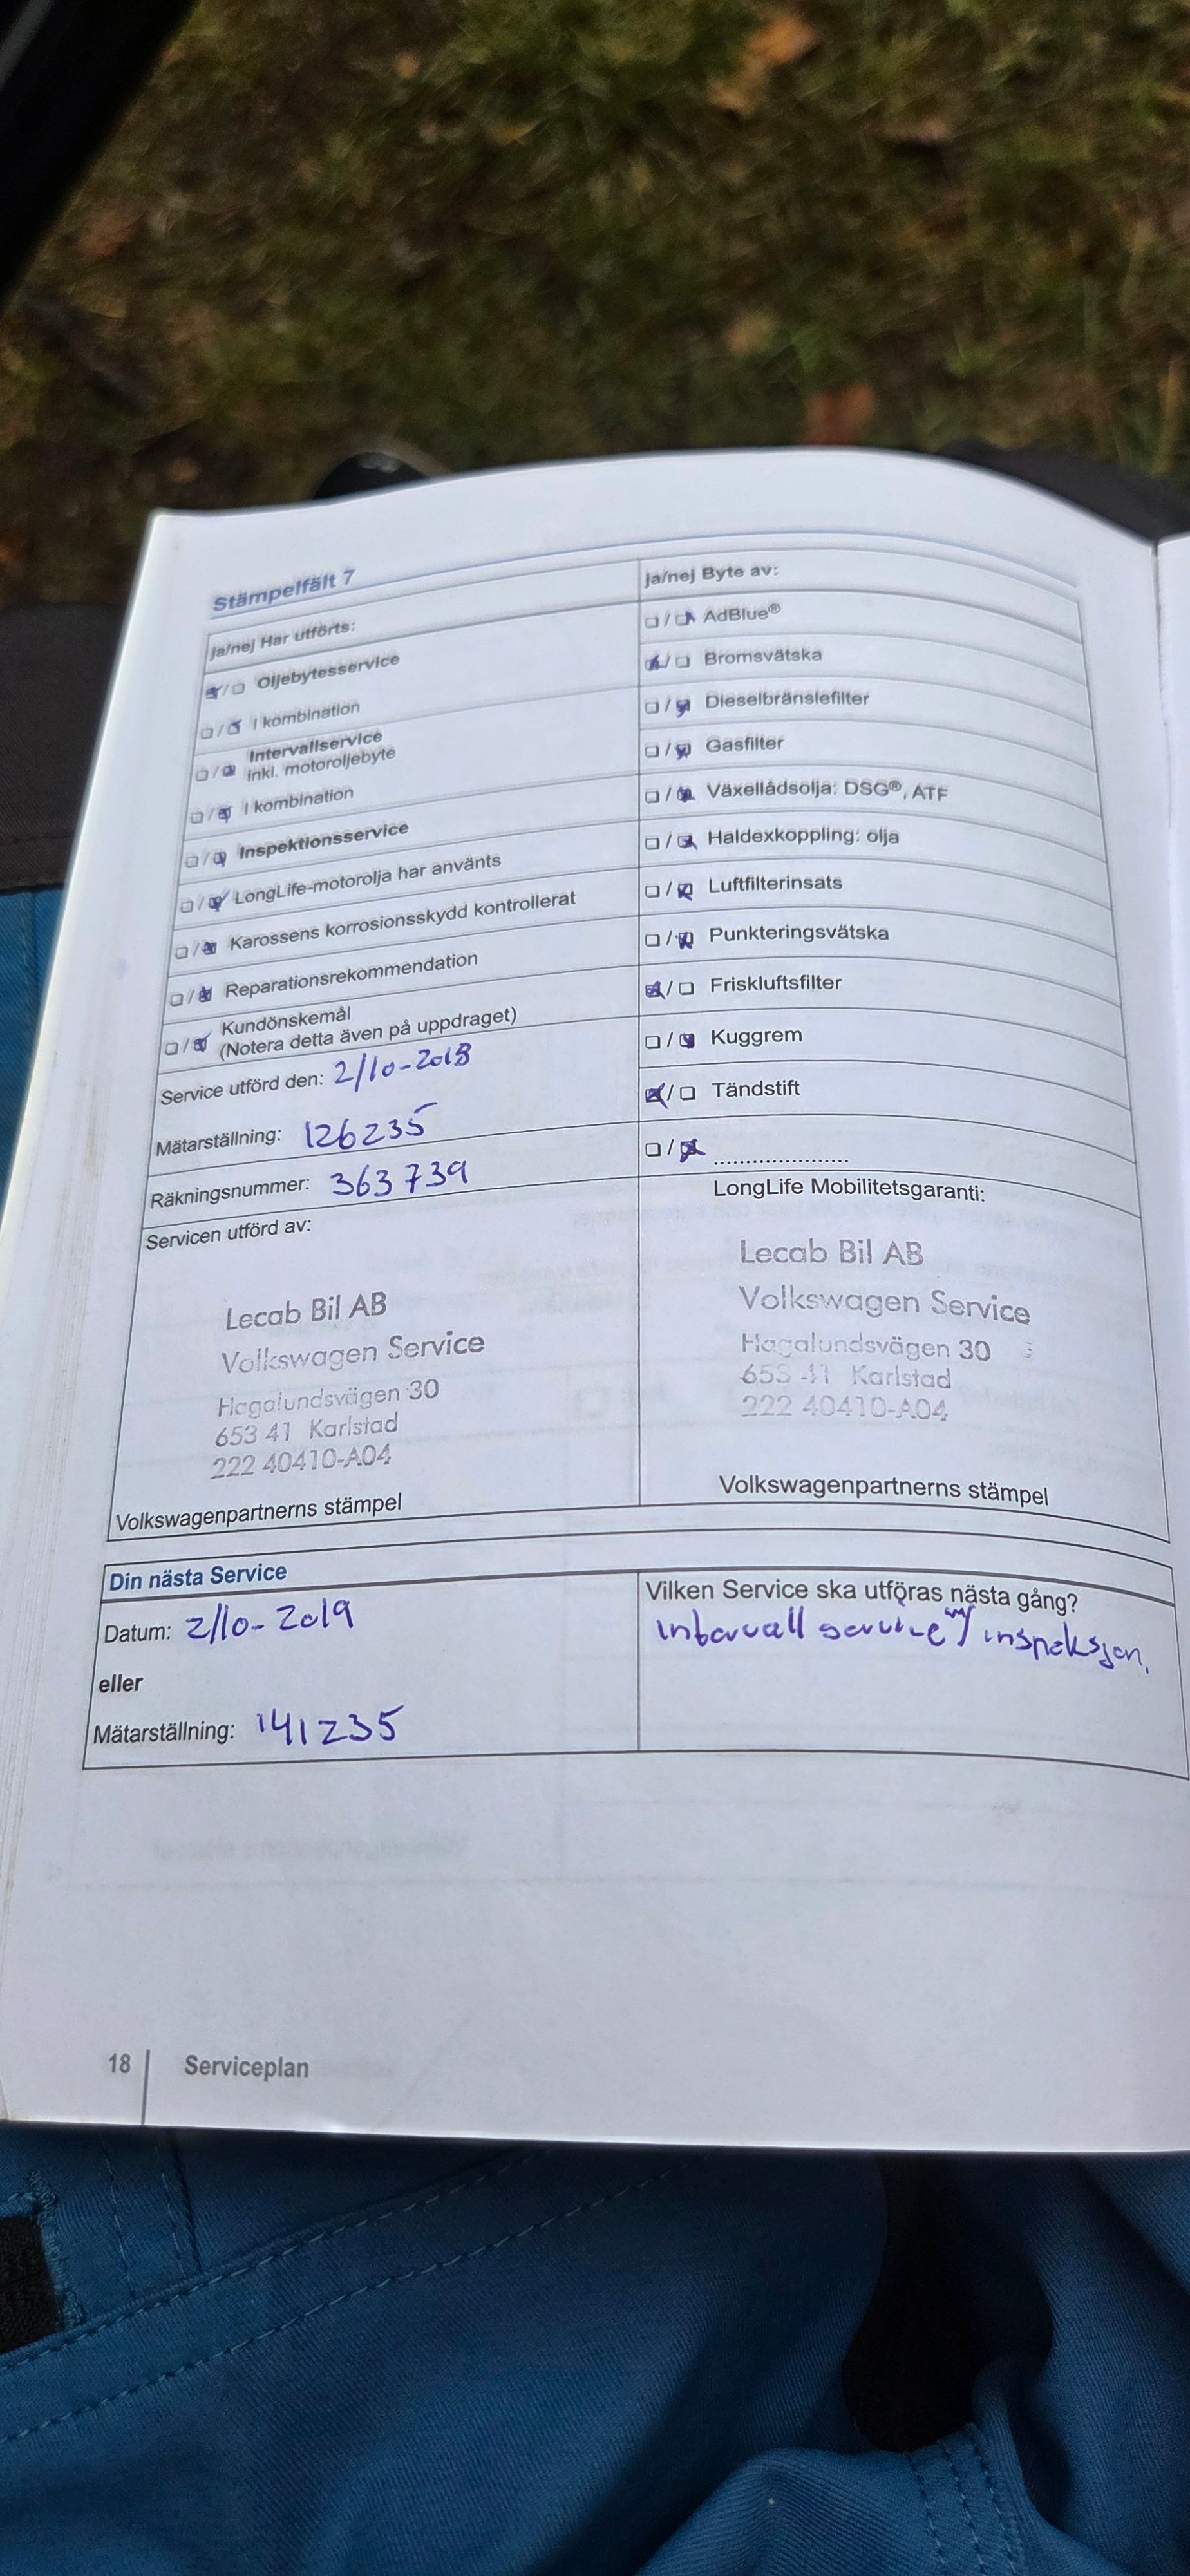 Stämpelfält 7
ja/nej Har utförts:
Oljebytesservice
I kombination
Intervallservice
inkl. motoroljebyte
I kombination
Inspektionsservice
LongLife-motorolja har använts
Karossens korrosionsskydd kontrollerat
Reparationsrekommendation
Kundönskemål
(Notera detta även på uppdraget)
Service utförd den: 2/10-2018
Mätarställning: 126235
Räkningsnummer: 363739
Servicen utförd av:
Lecab Bil AB
Volkswagen Service
Hagalundsvägen 30
653 41 Karlstad
222 40410-A04
Volkswagenpartnerns stämpel
ja/nej Byte av:
AdBlue®
Bromsvätska
Dieselbränslefilter
Gasfilter
Växellådsolja: DSG®, ATF
Haldexkoppling: olja
Luftfilterinsats
Punkteringsvätska
Friskluftsfilter
Kuggrem
Tändstift
....................
LongLife Mobilitetsgaranti:
Lecab Bil AB
Volkswagen Service
Hagalundsvägen 30
653 41 Karlstad
222 40410-A04
Volkswagenpartnerns stämpel
Din nästa Service
Datum: 2/10-2019
eller
Mätarställning: 141235
Vilken Service ska utföras nästa gång?
Intervall service inspeksjon.
18 Serviceplan